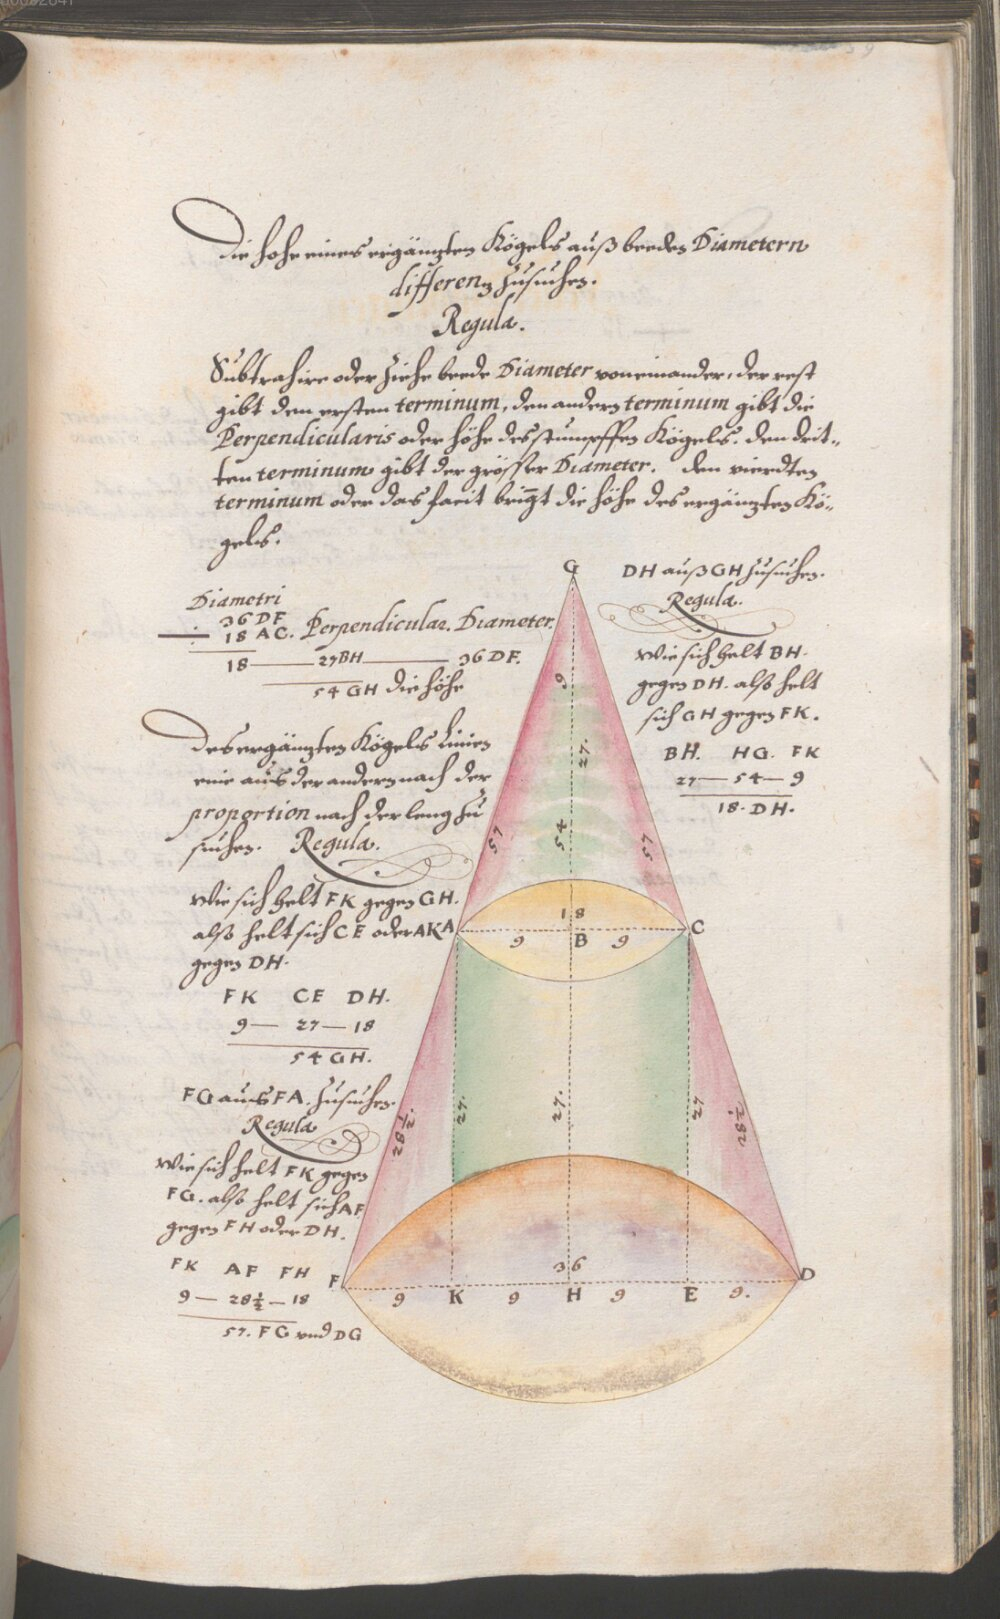 Die hohe eines ergäntzten Kögels auß beeden Diametern
differentz zusuchen.
Regula.
Subtrahire oder ziehe beede Diameter von einander, der rest
gibt den ersten terminum, den andern terminum gibt die
Perpendicularis oder höhe des stumpffen Kögels. den drit-
ten terminum gibt der grösser Diameter. den vierdten
terminum oder das facit bringt die höhe des ergäntzten Kö-
gels.
Diametri
36 DF
÷ 18 AC. Perpendicular. Diameter.
18 — 27 BH — 36 DF.
54 GH die höhe
Des ergäntzten Kögels Linien
eine aus der andern nach der
proportion nach der leng zu
suchen. Regula.
Wie sich helt FK gegen GH.
also helt sich CE oder AK
gegen DH.
FK CE DH.
9 — 27 — 18
54 GH.
FG aus FA. zusuchen.
Regula
Wie sich helt FK gegen
FG. also helt sich AF
gegen FH oder DH.
FK AF FH
9 — 28½ — 18
57. FG und DG
DH auß GH zusuchen.
Regula.
Wie sich helt BH.
gegen DH. also helt
sich GH gegen FK.
BH. HG. FK
27 — 54 — 9
18. DH.
G
9
27.
54
57
57
18
A
9
B
9
C
28½.
27.
27.
27
28½
36
F
9
K
9
H
9
E
9.
D